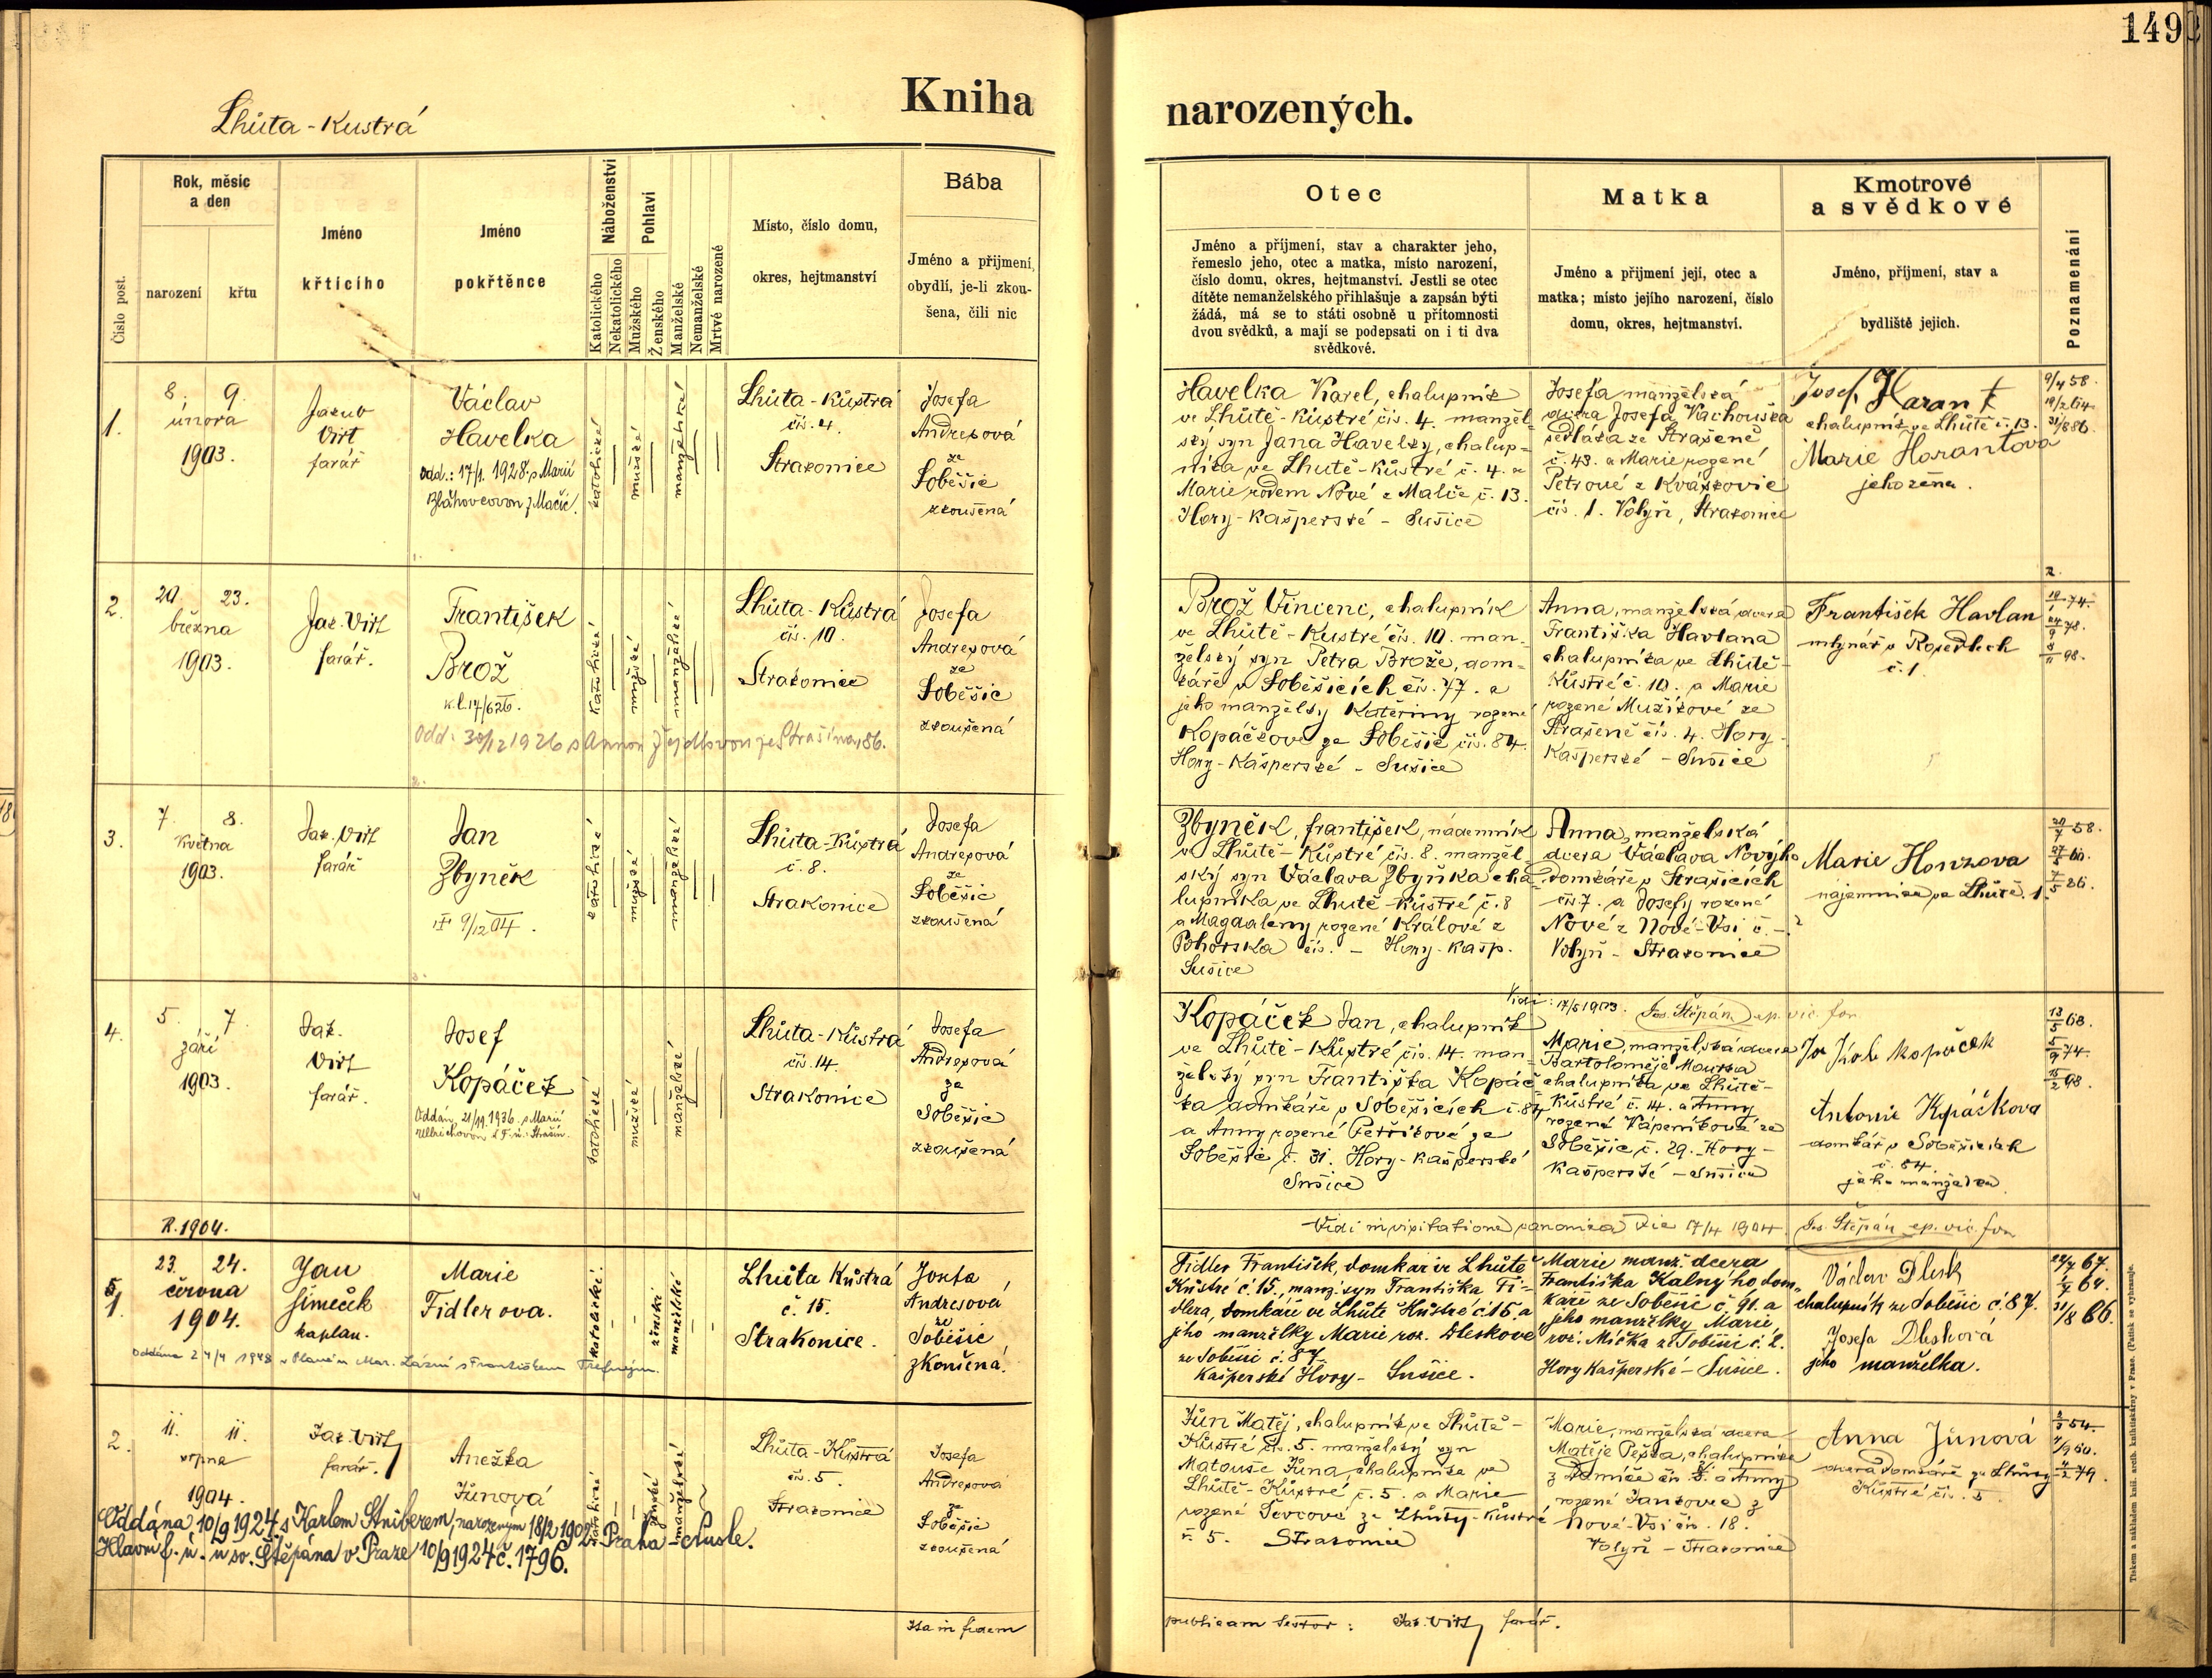 149
Kniha narozených.
Lhůta-Kustrá
Číslo post.
Rok, měsíc
a den
narození
křtu
Jméno
křtícího
Jméno
pokřtěnce
Náboženství
Katolického
Nekatolického
Pohlaví
Mužského
Ženského
Manželské
Nemanželské
Mrtvě narozené
Místo, číslo domu,
okres, hejtmanství
Bába
Jméno a přijmení,
obydlí, je-li zkou-
šena, čili nic
Otec
Jméno a příjmení, stav a charakter jeho,
řemeslo jeho, otec a matka, místo narození,
číslo domu, okres, hejtmanství. Jestli se otec
dítěte nemanželského přihlašuje a zapsán býti
žádá, má se to státi osobně u přítomnosti
dvou svědků, a mají se podepsati on i ti dva
svědkové.
Matka
Jméno a přijmení její, otec a
matka; místo jejího narození, číslo
domu, okres, hejtmanství.
Kmotrové
a svědkové
Jméno, příjmení, stav a
bydliště jejich.
Poznamenání
1.
8. 9.
února
1903.
Jakub
Virt
farář
Václav
Havelka
odd.: 17/1. 1928 s Marií
z Mačic.
katolické
mužské
manželské
Lhůta-Kůstrá
čís. 4.
Strakonice
Josefa
Andresová
ze
Soběšic
zkoušená
Havelka Karel, chalupník
ve Lhůtě-Kůstré čís. 4. manžel-
ský syn Jana Havelky, chalup-
níka ve Lhutě-Kůstré č. 4. a
Marie rodem Nové z Malče č. 13.
Hory-Kašperské - Sušice
Josefa manželská
dcera Josefa Vachouška
sedláka ze Strašeně
č. 43. a Marie rozené
Petrové z Kváskovic
čís. 1. Volyň, Strakonice
Josef Harant
chalupník ve Lhůtě č. 13.
Marie Harantova
jeho žena.
9/4 58.
19/2 64.
31/8 86.
2.
20. 23.
března
1903.
Jak. Virt
farář.
František
Brož
k.l. 17/6 26.
Odd. 30/12 1926 s Annou ze Strašína, 86.
katolické
mužské
manželské
Lhůta-Kůstrá
čís. 10.
Strakonice
Josefa
Andresová
ze
Soběšic
zkoušená
Brož Vincenc, chalupník
ve Lhůtě-Kustré čís. 10. man-
želský syn Petra Brože, dom-
káře v Soběšicích čís. 77. a
jeho manželky Kateřiny rozené
Kopáčkové ze Soběšic čís. 84.
Hory-Kašperské - Sušice
Anna, manželská dcera
Františka Havlana
chalupníka ve Lhůtě-
Kůstré č. 10. a Marie
rozené Mužíkové ze
Strašeně čís. 4. Hory-
Kašperské - Sušice
František Havlan
mlynář v Rosedlech
č. 1
3.
7. 8.
května
1903.
Jak. Virt
farář
Jan
Zbyněk
9/12 04.
katolické
mužské
manželské
Lhůta-Kůstrá
č. 8.
Strakonice
Josefa
Andresová
ze
Soběšic
zkoušená
Zbyněk, František, nádenník
ve Lhůtě-Kůstré čís. 8. manžel-
ský syn Václava Zbyňka cha-
lupníka ve Lhutě-Kůstré č. 8
a Magdaleny rozené Králové z
Pohorska čís. - Hory-Kašp.
Sušice
Anna, manželská
dcera Václava Nového
domkáře v Strašicích
čís. 7. a Josefy rozené
Nové z Nové-Vsi č. -
Volyň - Strakonice
Marie Honzova
nájemnice ve Lhůtě. 1.
4.
5. 7.
září
1903.
Jak.
Virt
farář.
Josef
Kopáček
Oddán 21/9. 1936. s Marií
Ullrichovou
katolické
mužské
manželské
Lhůta-Kůstrá
čís. 14.
Strakonice
Josefa
Andresová
ze
Soběšic
zkoušená
Vidi: 17/5 1903. Jos. Štěpán ep. vic. for
Kopáček Jan, chalupník
ve Lhůtě-Kůstré čís. 14. man-
želský syn Františka Kopáč-
ka domkáře v Soběšicích č. 84
a Anny rozené Petříkové ze
Soběšic č. 31. Hory-Kašperské
Sušice
Marie, manželská dcera
Bartoloměje Mourka
chalupníka ve Lhůtě-
Kůstré č. 14. a Anny
rozené Vápeníkové ze
Soběšic č. 29. Hory-
Kašperské - Sušice
Kopáček
Antonie Kopáčkova
domkář v Soběšicích
č. 84.
jeho manželka
R. 1904.
Vidi in visitatione canonica die 17/4 1904. Jos. Štěpán ep. vic. for
5/1.
23. 24.
června
1904.
Jan
Šimeček
kaplan.
Marie
Fidlerova.
Oddána 24/4 1948 v Plané u Mar. Lázní s Františkem
katolické.
ženské
manželské
Lhůta Kůstrá
č. 15.
Strakonice.
Josefa
Andresová
ze
Soběšic
zkoušená.
Fidler František, domkář ve Lhůtě
Kůstré č. 15., manž. syn Františka Fi-
dlera, domkáře ve Lhůtě Kůstré č. 15. a
jeho manželky Marie roz. Dleskové
ze Soběšic č. 87
Kašperské Hory - Sušice.
Marie manž. dcera
Františka Kalného dom-
káře ze Soběšic č. 91. a
jeho manželky Marie,
roz. Mička ze Soběšic č. 2.
Hory Kašperské - Sušice.
Václav Dlesk
chalupník ze Soběšic č. 87.
Josefa Dlesková
jeho manželka.
2.
11. 11.
srpna
1904.
Jak. Virt
farář.
Anežka
Jůnová
Oddána 10/9 1924 s Karlem Stniberem, narozeným 18/2 1902. Praha-Nusle.
Hlavní f. ú. u sv. Štěpána v Praze 10/9 1924 č. 1796.
katolické
ženské
manželské
Lhůta-Kůstrá
čís. 5.
Strakonice
Josefa
Andresová
ze
Soběšic
zkoušená
Jůn Matěj, chalupník ve Lhůtě-
Kůstré čís. 5. manželský syn
Matouše Jůna, chalupníka ve
Lhůtě-Kůstré č. 5. a Marie
rozené Ševcové ze Lhůty-Kůstré
č. 5. Strakonice
Marie, manželská dcera
Matěje Peška, chalupníka
a Anny
rozené Jankové z
Nové-Vsi čís. 18.
Volyň - Strakonice
Anna Jůnová
dcera domkáře ze Lhůty
Kůstré čís. 5
Ita in fidem publicam testor: Jak. Virt, farář.